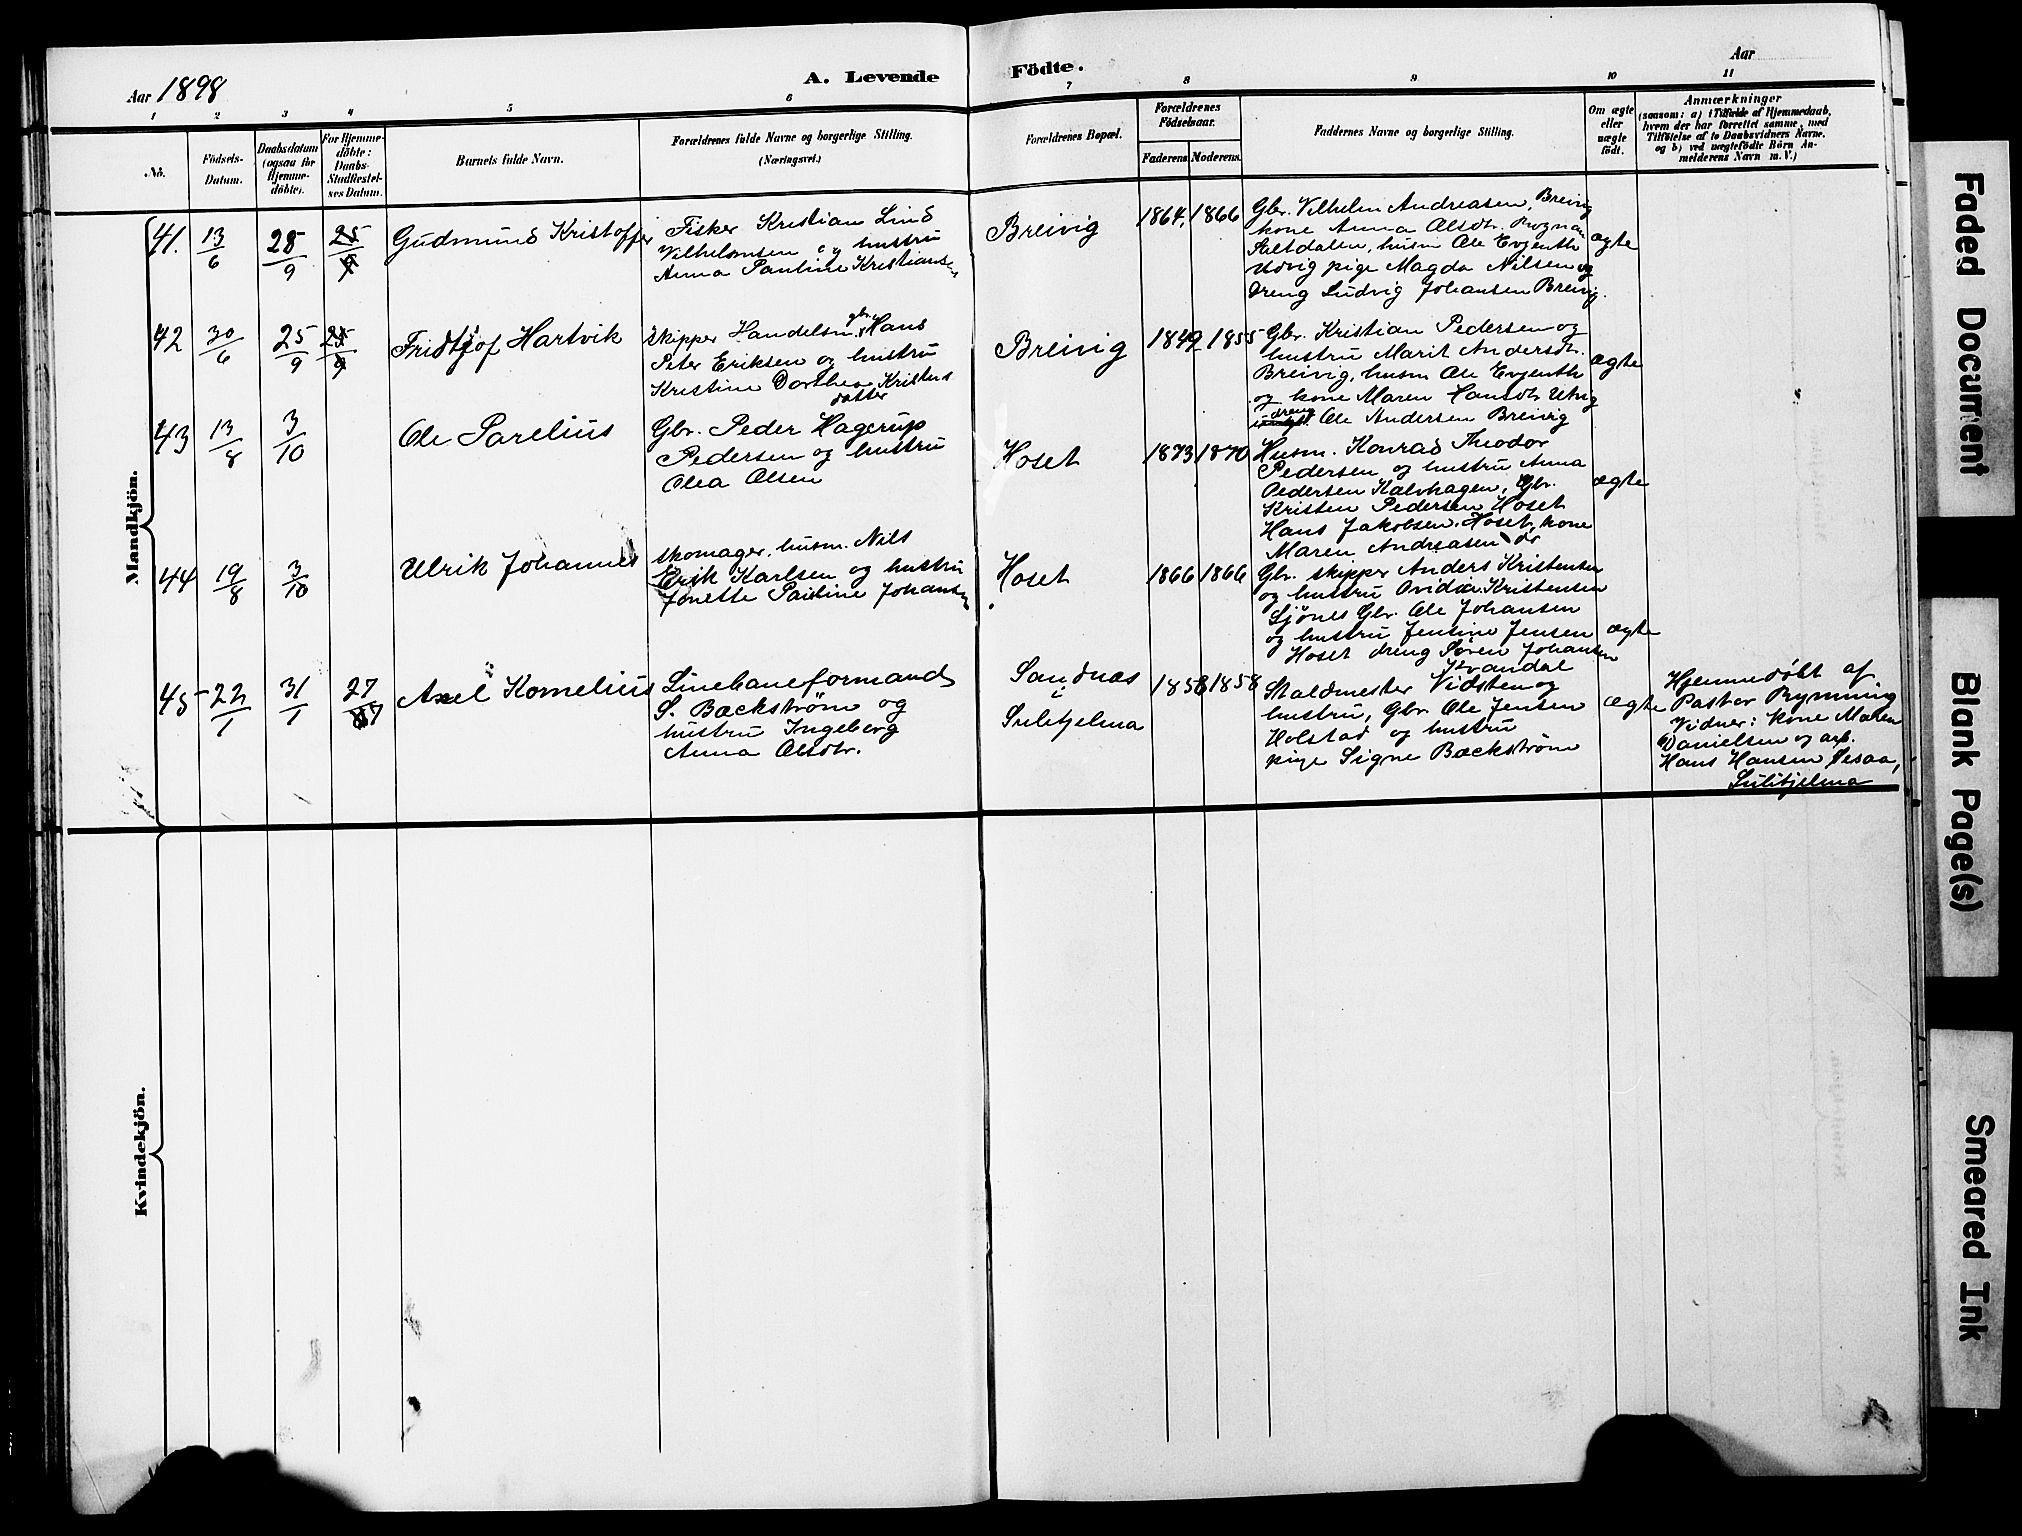 Aar 1898
A. Levende Födte.
Aar
1 2 3 4 5 6 7 8 9 10 11
No.
Födsels-
Datum.
Daabsdatum
(ogsaa för
Hjemme-
döbte).
For Hjemme-
döbte:
Daabs-
Stadfæstel-
ses Datum.
Barnets fulde Navn.
Forældrenes fulde Navne og borgerlige Stilling.
(Næringsvei.)
Forældrenes Bopæl.
Forældrenes
Födselsaar.
Faderens. Moderens.
Faddernes Navne og borgerlige Stilling.
Om ægte
eller
uægte
födt.
Anmærkninger
(saasom: a) i Tilfælde af Hjemmedaab,
hvem der har forrettet samme, med
Tilföielse af to Daabsvidners Navne,
og b) ved uægtefödte Börn An-
melderens Navn m. V.)
Mandkjön.
41. 13/6 25/9 25/9 Gudmund Kristoffer
Fisker Kristian Lind
Vilhelmsen og hustru
Anna Pauline Kristiansen
Breivig
1864. 1866
Gbr. Vilhelm Andreasen, Breivig
kone Anna Olsdtr. Rognan
Saltdalen, husm Ole Evjenth
Utvig pige Magda Nilsen og
dreng Ludvig Johansen Breivig.
ægte
42 30/6 25/9 25/9 Fridtjof Hartvik
Skipper Handelsm gbr. Hans
Peter Eriksen og hustru
Kristine Dorthea Kristens
datter
Breivig
1849 1855
Gbr. Kristian Pedersen og
hustru Marit Andersdtr.
Breivig, husm Ole Evjenth
og kone Maren Hansdtr Utvig
dreng Ole Andersen Breivig
ægte
43 13/8 3/10 Ole Parelius
Gbr. Peder Hagerup
Pedersen og hustru
Olea Olsen
Hoset
1873 1870
Husm. Konrad Theodor
Pedersen og hustru Anna
Pedersen Kalvhagen, Gbr.
Kristen Pedersen Hoset
Hans Jakobsen Hoset, kone
Maren Andreasen do
ægte
44 19/8 3/10 Ulrik Johannes
Skomager. husm. Nils
Erik Karlsen og hustru
Jonette Pauline Johansen
Hoset
1866 1866
Gbr. skipper Anders Kristensen
og hustru Ovidia Kristensen
Sjönes Gbr. Ole Johansen
og hustru Jensine Jensen
Hoset dreng Søren Johansen
Kvandal
ægte
45 22/1 31/1 27/7 Axel Kornelius
Linebaneformand
S. Bæckstrøm og
hustru Ingeborg
Anna Olsdtr.
Sandnæs
i
Sulitjelma
1858 1858
Staldmester Vidsten og
hustru, Gbr. Ole Jensen
Holstad og hustru
pige Signe Bæckstrøm
ægte
Hjemmedøbt af
Pastor Rynning
Vidner: kone Maren
Danielsen og arb.
Hans Hansen
Sulitjelma
Kvindekjön.
Faded Document
Blank Page(s)
Smeared Ink